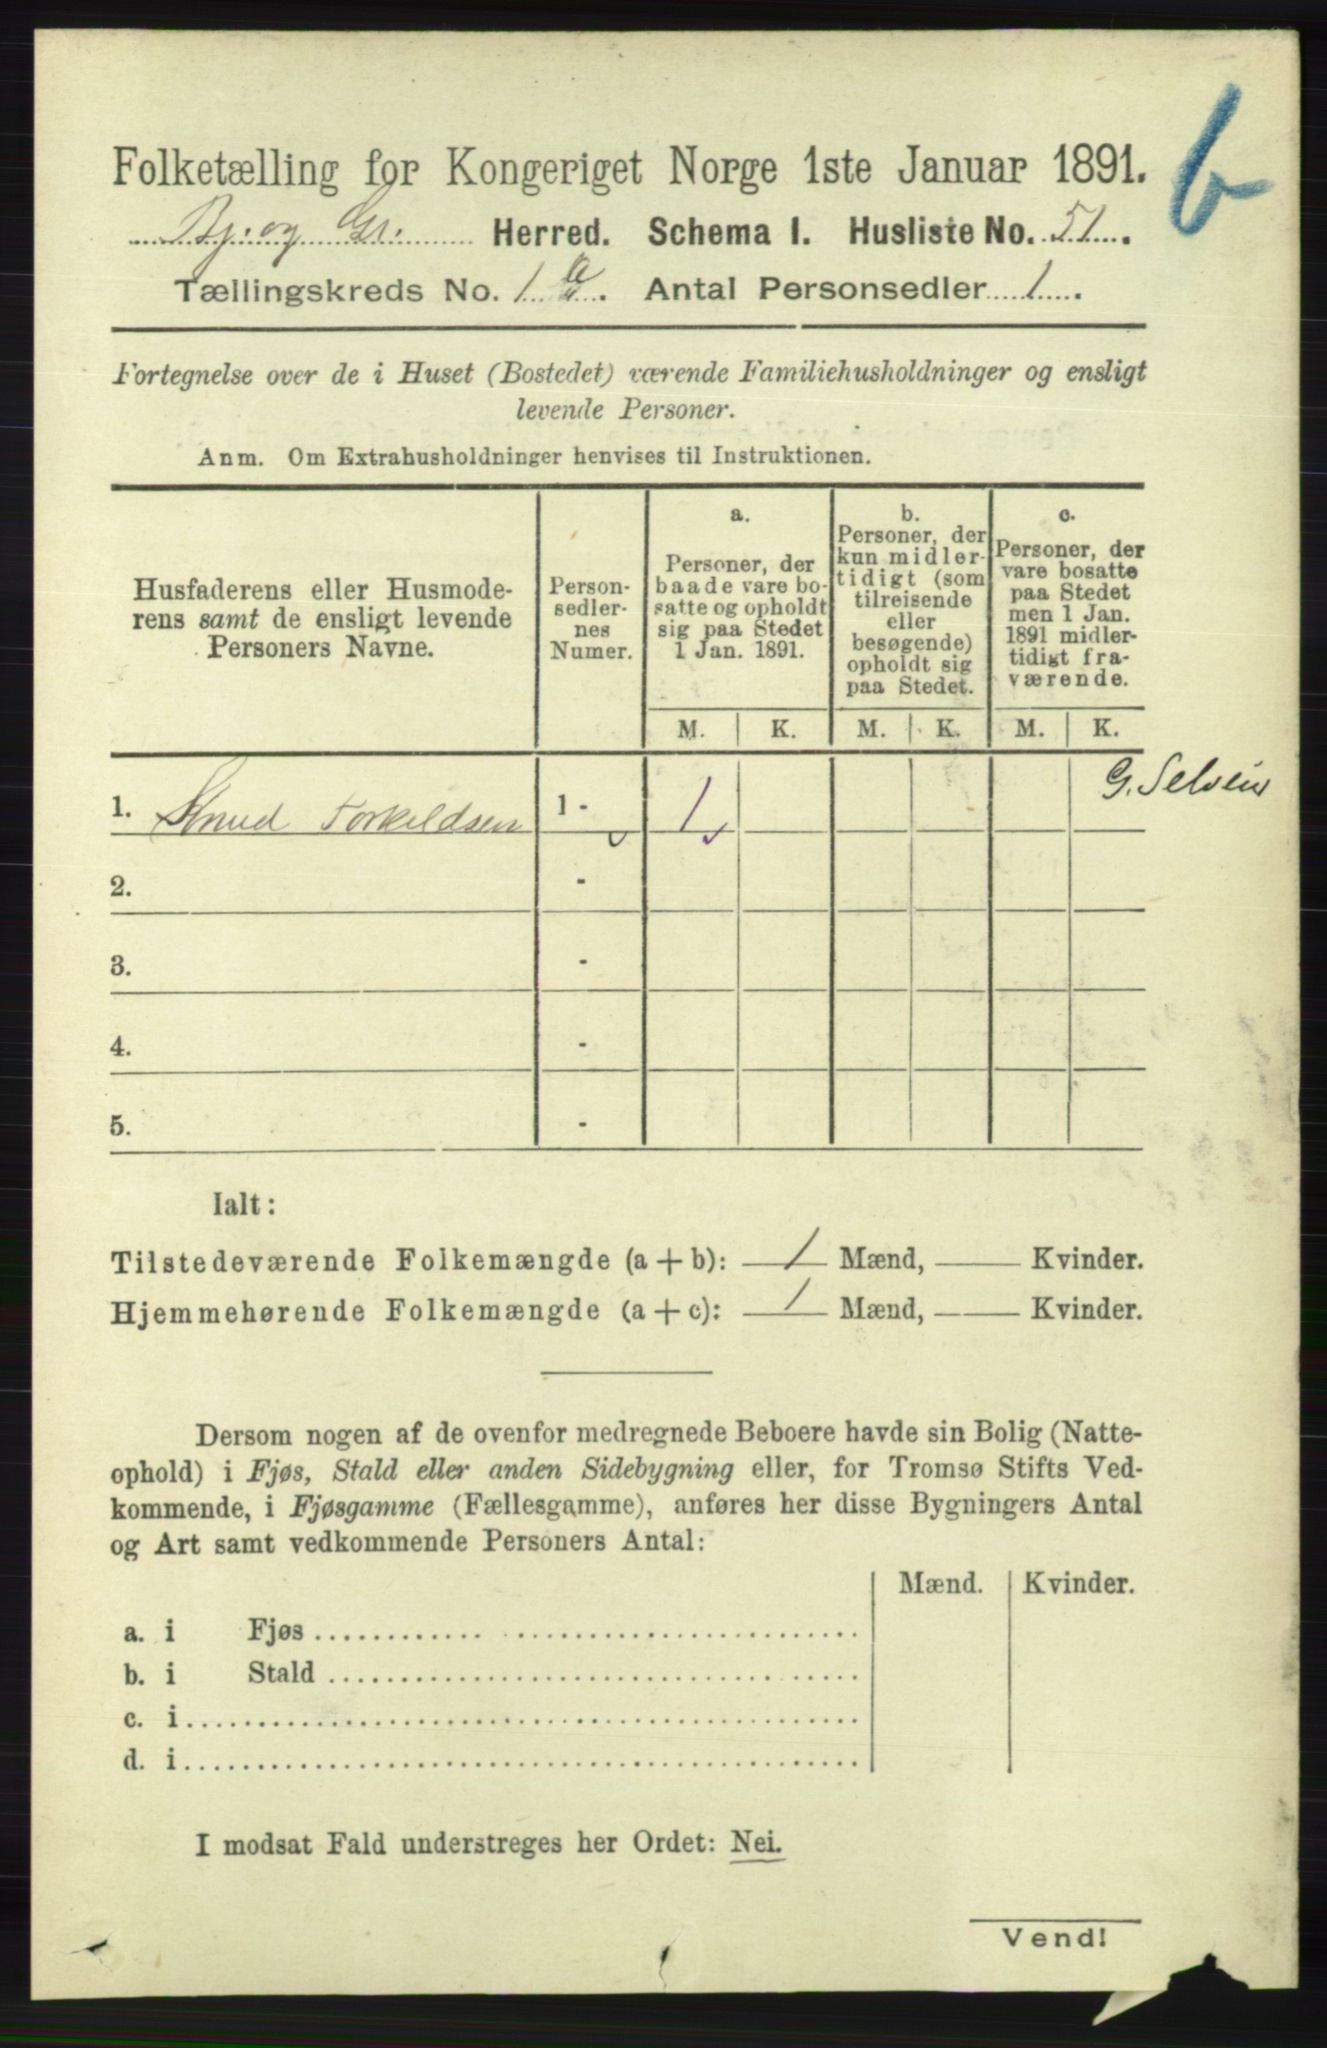 b
Folketælling for Kongeriget Norge 1ste Januar 1891.
Bj. og Gr. Herred. Schema I. Husliste No. 51.
Tællingskreds No. 1 a. Antal Personsedler 1.
Fortegnelse over de i Huset (Bostedet) værende Familiehusholdninger og ensligt
levende Personer.
Anm. Om Extrahusholdninger henvises til Instruktionen.
Husfaderens eller Husmode-
rens samt de ensligt levende
Personers Navne.
Person-
sedler-
nes
Numer.
a.
Personer, der
baade vare bo-
satte og opholdt
sig paa Stedet
1 Jan. 1891.
b.
Personer, der
kun midler-
tidigt (som
tilreisende
eller
besøgende)
opholdt sig
paa Stedet.
c.
Personer, der
vare bosatte
paa Stedet
men 1 Jan.
1891 midler-
tidigt fra-
værende.
M. K. M. K. M. K.
1. Knud Torkildsen 1 - 1 G. Selsein
2. -
3. -
4. -
5. -
Ialt:
Tilstedeværende Folkemængde (a + b): 1 Mænd, — Kvinder.
Hjemmehørende Folkemængde (a + c): 1 Mænd, — Kvinder.
Dersom nogen af de ovenfor medregnede Beboere havde sin Bolig (Natte-
ophold) i Fjøs, Stald eller anden Sidebygning eller, for Tromsø Stifts Ved-
kommende, i Fjøsgamme (Fællesgamme), anføres her disse Bygningers Antal
og Art samt vedkommende Personers Antal:
Mænd. Kvinder.
a. i Fjøs
b. i Stald
c. i
d. i
I modsat Fald understreges her Ordet: Nei.
Vend!